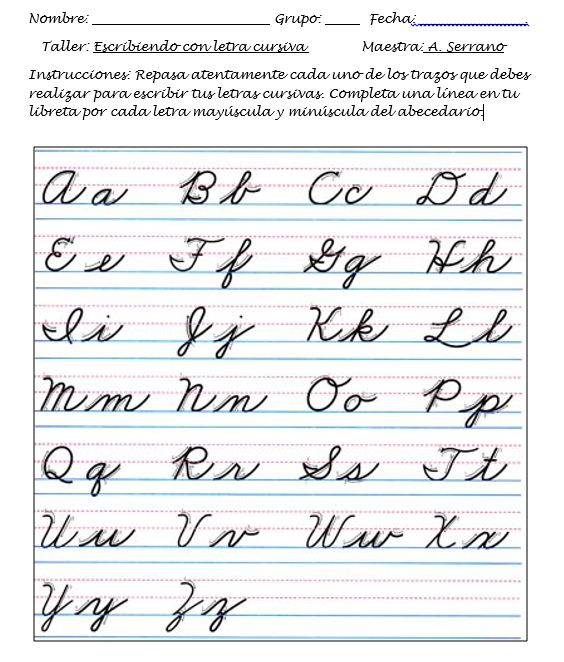 Nombre: ____________________ Grupo: ____ Fecha: ____________.
Taller: Escribiendo con letra cursiva Maestra: A. Serrano
Instrucciones: Repasa atentamente cada uno de los trazos que debes
realizar para escribir tus letras cursivas. Completa una línea en tu
libreta por cada letra mayúscula y minúscula del abecedario.
Aa Bb Cc Dd
Ee Ff Gg Hh
Ii Jj Kk Ll
Mm Nn Oo Pp
Qq Rr Ss Tt
Uu Vv Ww Xx
Yy Zz